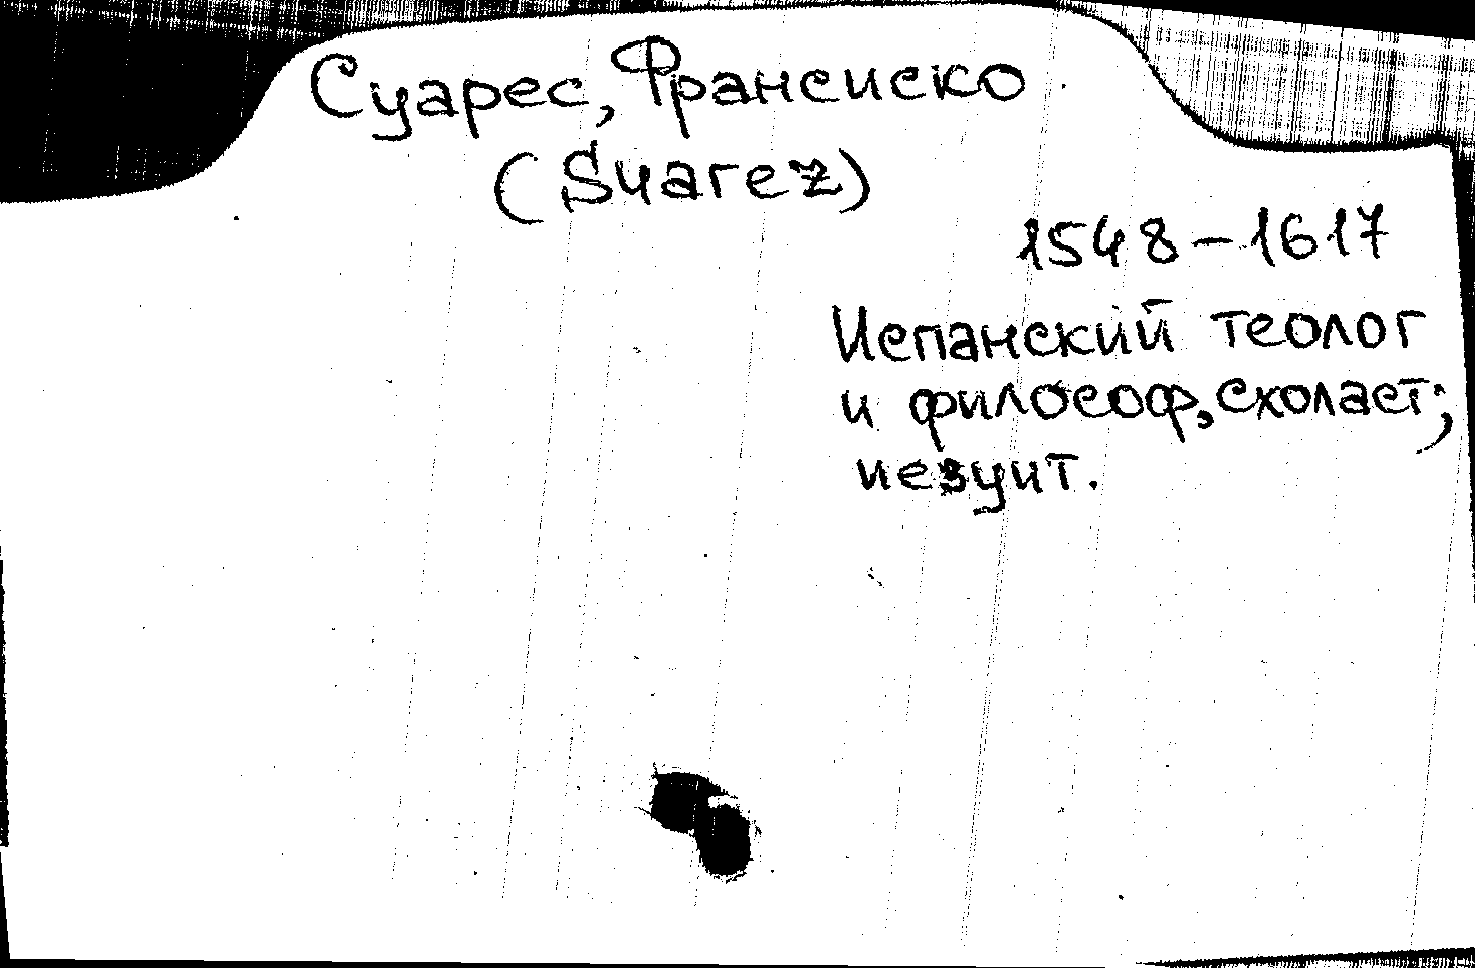 Суарес, Франсиско
(Suarez)
1548–1617
Испанский теолог
и философ, схоласт;
иезуит.